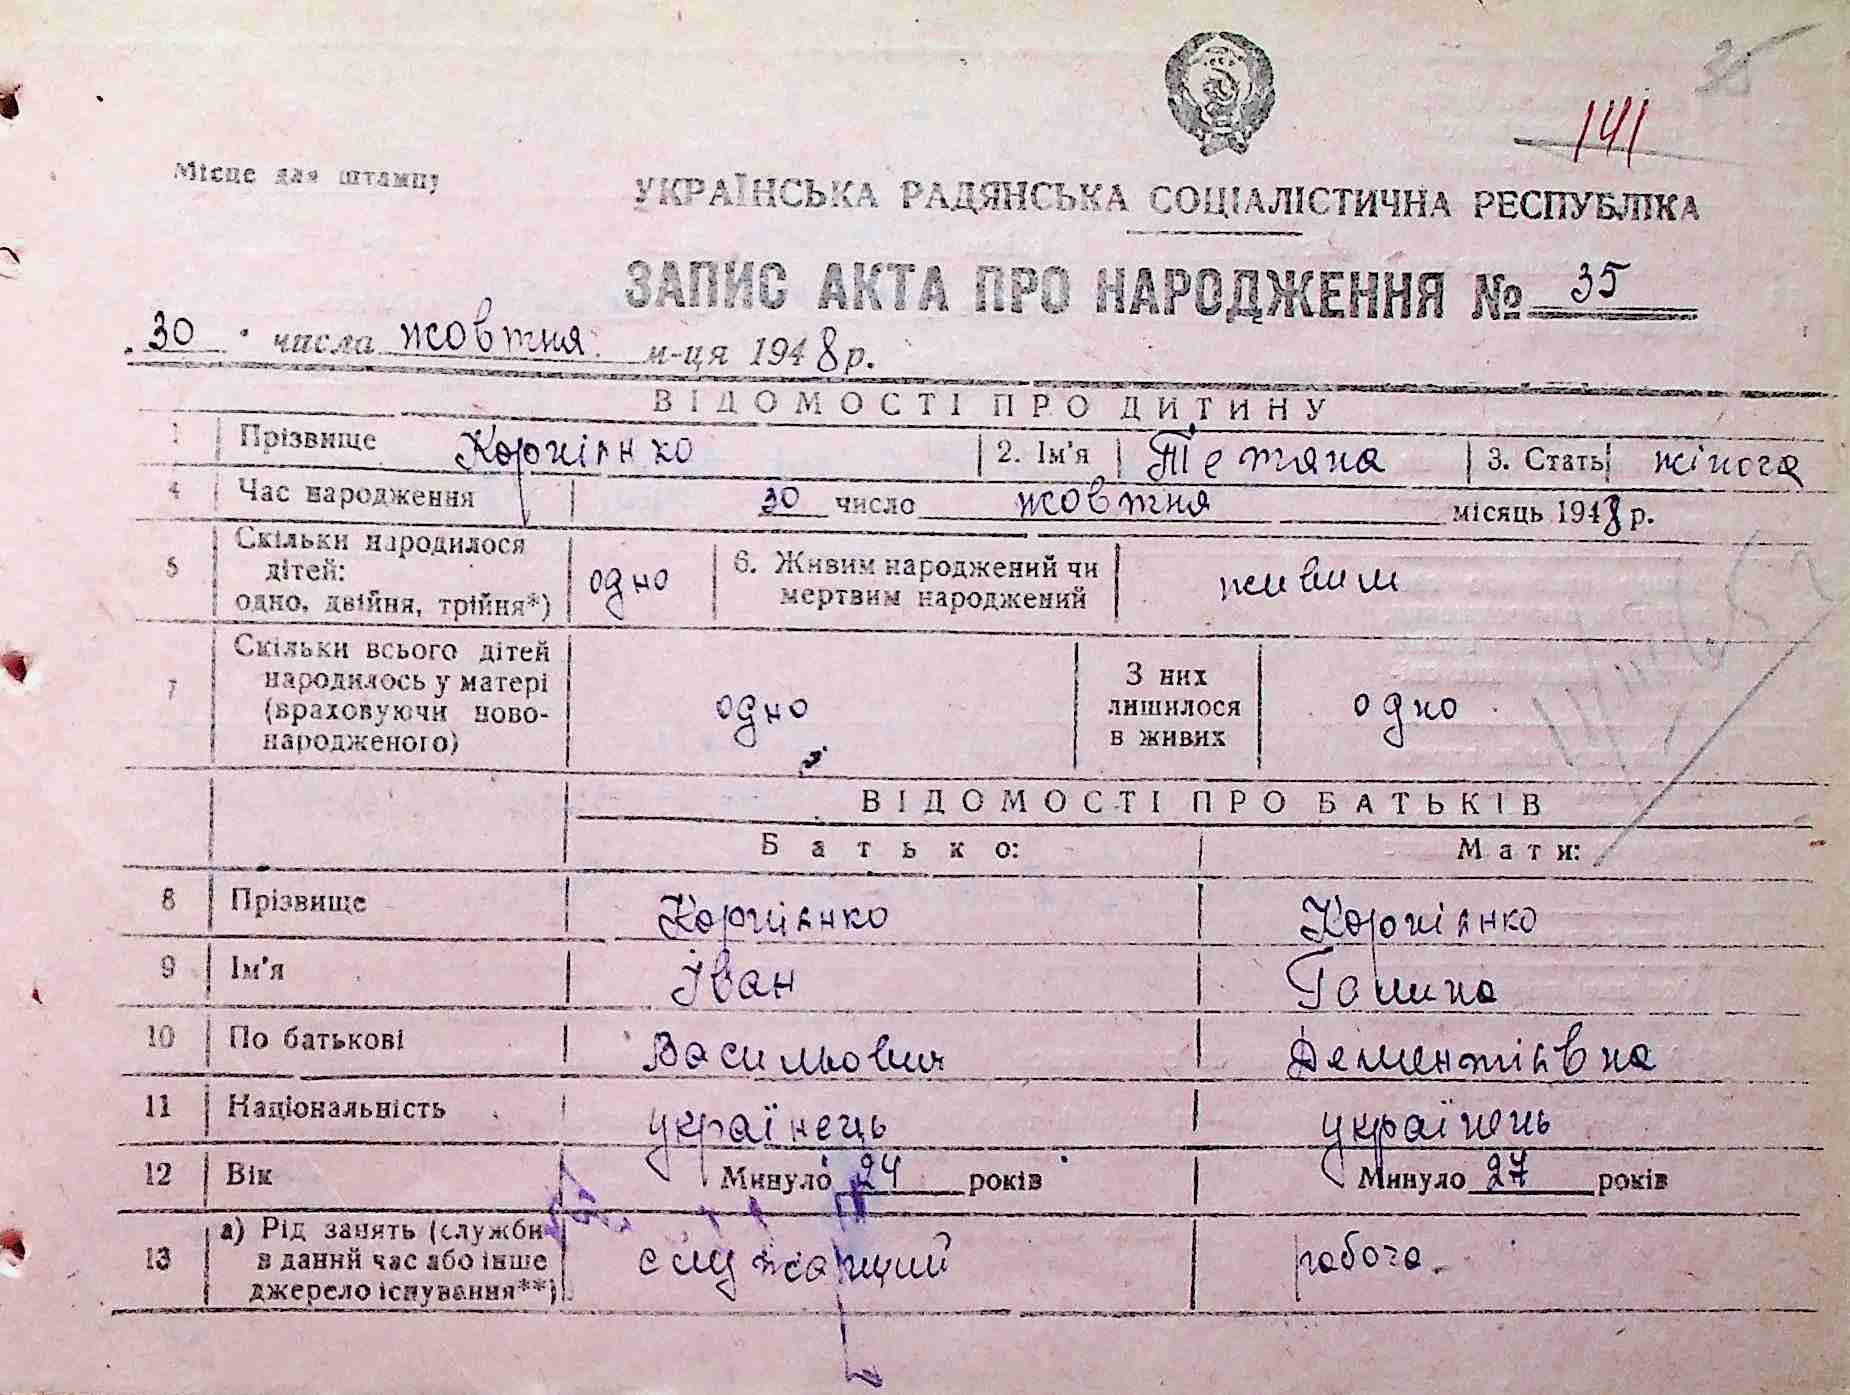 35
141
Місце для штампу
УКРАЇНСЬКА РАДЯНСЬКА СОЦІАЛІСТИЧНА РЕСПУБЛІКА
ЗАПИС АКТА ПРО НАРОДЖЕННЯ № 35
30 числа жовтня м-ця 1948 р.
ВІДОМОСТІ ПРО ДИТИНУ
1 Прізвище Корнієнко 2. Ім'я Тетяна 3. Стать жіноча
4 Час народження 30 число жовтня місяць 1948 р.
5 Скільки народилося
дітей:
одно, двійня, трійня*) одно 6. Живим народжений чи
мертвим народжений живим
7 Скільки всього дітей
народилось у матері
(враховуючи ново-
народженого) одно З них
лишилося
в живих одно
ВІДОМОСТІ ПРО БАТЬКІВ
Батько: Мати:
8 Прізвище Корнієнко Корнієнко
9 Ім'я Іван Галина
10 По батькові Васильович Дементієвна
11 Національність українець українець
12 Вік Минуло 24 років Минуло 27 років
13 а) Рід занять (служби
в данний час або інше
джерело існування**) служащий рабоча